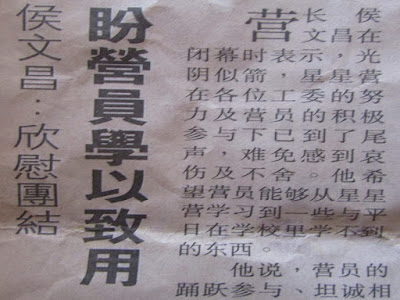 盼營員學以致用
侯文昌：欣慰團結
营长侯
文昌在
闭幕时表示，光
阴似箭，星星营
在各位工委的努
力及营员的积极
参与下已到了尾
声，难免感到哀
伤及不舍。他希
望营员能够从星星
营学习到一些与平
日在学校里学不到
的东西。
他说，营员的
踊跃参与、坦诚相